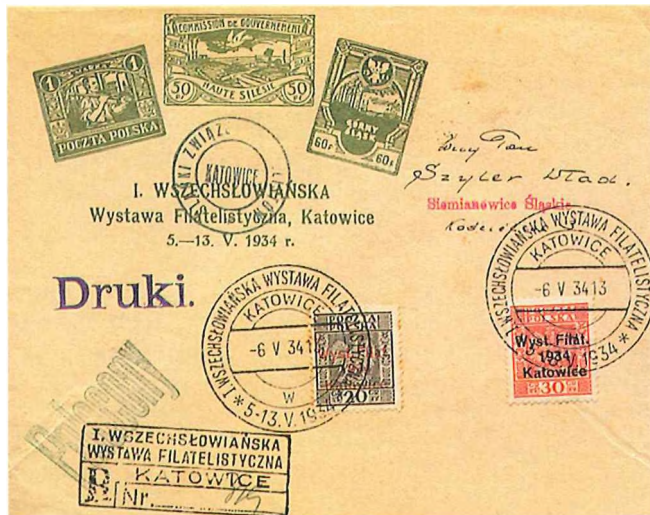 1 MARKA 1
POCZTA POLSKA
COMMISSION DE GOUVERNEMENT
50 50
HAUTE SILESIE
60 F 60 F
KATOWICE
I. WSZECHSŁOWIAŃSKA
Wystawa Filatelistyczna, Katowice
5.—13. V. 1934 r.
Szyler Wład.
Siemianowice Śląskie
Druki.
I. WSZECHSŁOWIAŃSKA WYSTAWA FILATELISTYCZNA
KATOWICE
-6 V 3413
* 5-13.V.1934 *
I. WSZECHSŁOWIAŃSKA WYSTAWA
KATOWICE
-6 V 341
W
* 5-13.V.1934
20
POLSKA
Wyst. Filat.
1934
Katowice
30
I. WSZECHSŁOWIAŃSKA
WYSTAWA FILATELISTYCZNA
KATOWICE
R Nr.